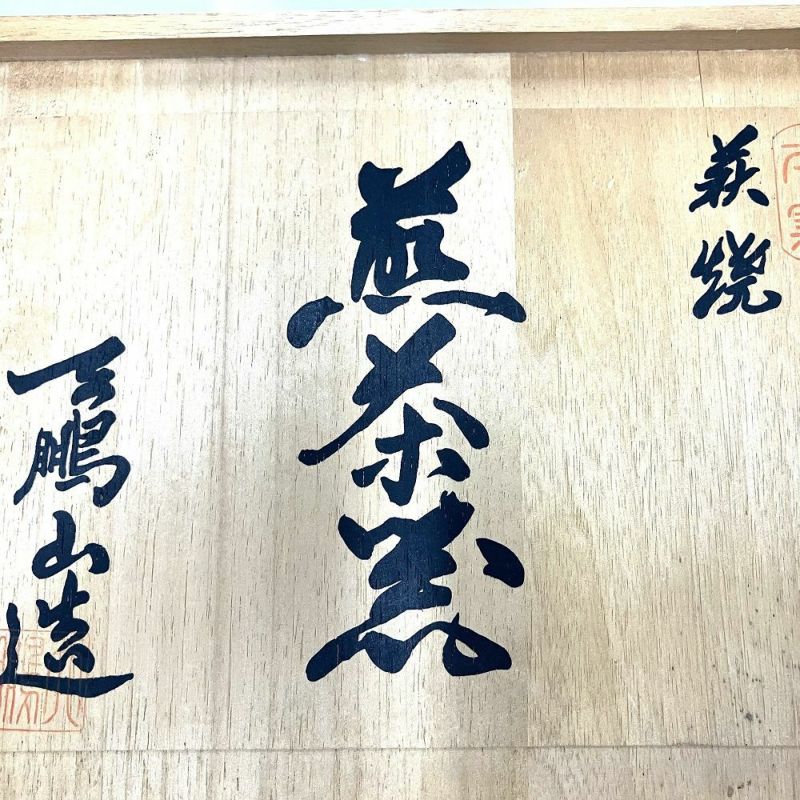 萩焼
煎茶器
天鵬山造